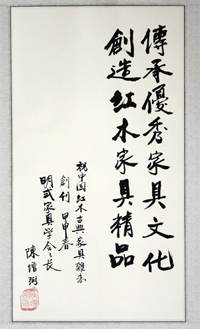 傳承優秀家具文化
創造紅木家具精品
祝中国红木古典家具雜志
創刊 甲申春
明式家具学会会长
陳增弼